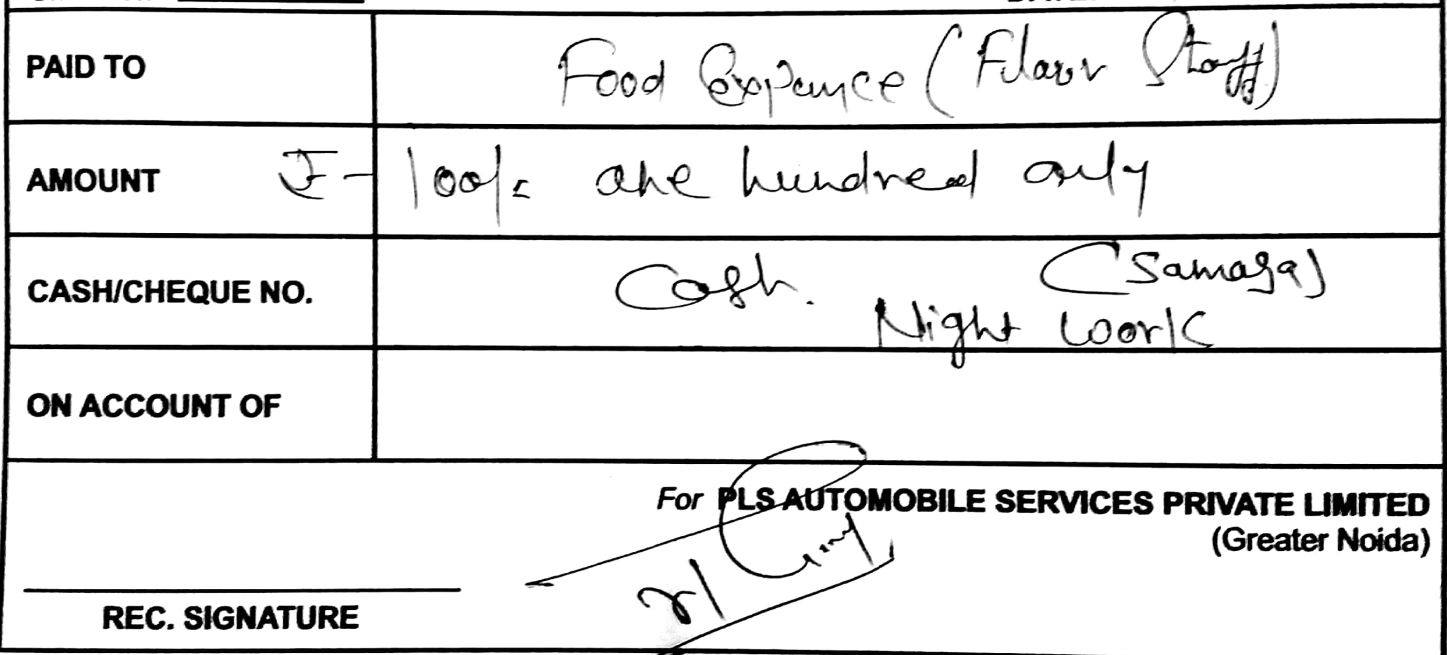 PAID TO Food Expance (Filaor Staff)
AMOUNT ₹- 100/= one hundred only
CASH/CHEQUE NO. Cash. (Samaga)
Night work
ON ACCOUNT OF
For PLS AUTOMOBILE SERVICES PRIVATE LIMITED
(Greater Noida)
REC. SIGNATURE